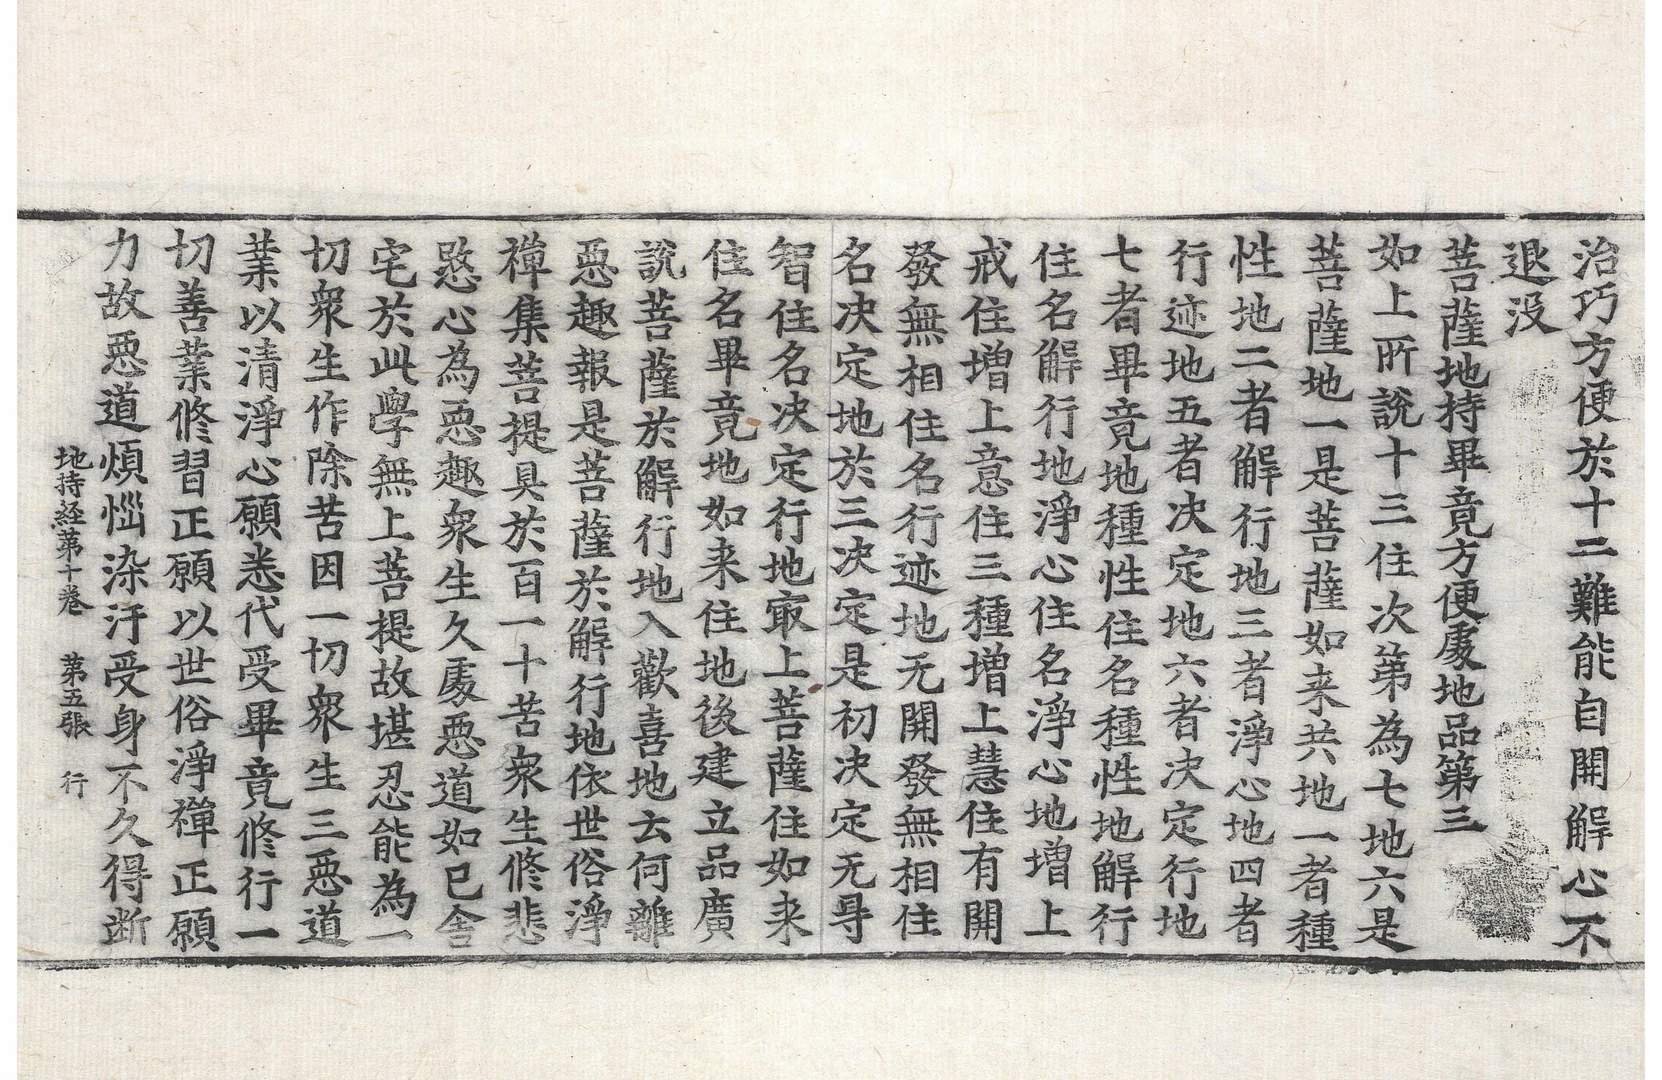 治巧方便於十二難能自開解心不
退没
菩薩地持畢竟方便處地品第三
如上所說十三住次第為七地六是
菩薩地一是菩薩如来共地一者種
性地二者解行地三者淨心地四者
行迹地五者决定地六者决定行地
七者畢竟地種性住名種性地解行
住名解行地淨心住名淨心地增上
戒住增上意住三種增上慧住有開
發無相住名行迹地无開發無相住
名决定地於三决定是初决定无㝵
智住名决定行地㝡上菩薩住如来
住名畢竟地如来住地後建立品廣
說菩薩於解行地入歡喜地云何離
惡趣報是菩薩於解行地依世俗淨
禪集菩提具於百一十苦衆生修悲
愍心為惡趣衆生久處惡道如已舍
宅於此學無上菩提故堪忍能為一
切衆生作除苦因一切衆生三惡道
業以清淨心願悉代受畢竟修行一
切善業修習正願以世俗淨禪正願
力故惡道煩惱染汙受身不久得断
地持経第十卷 第五張 行